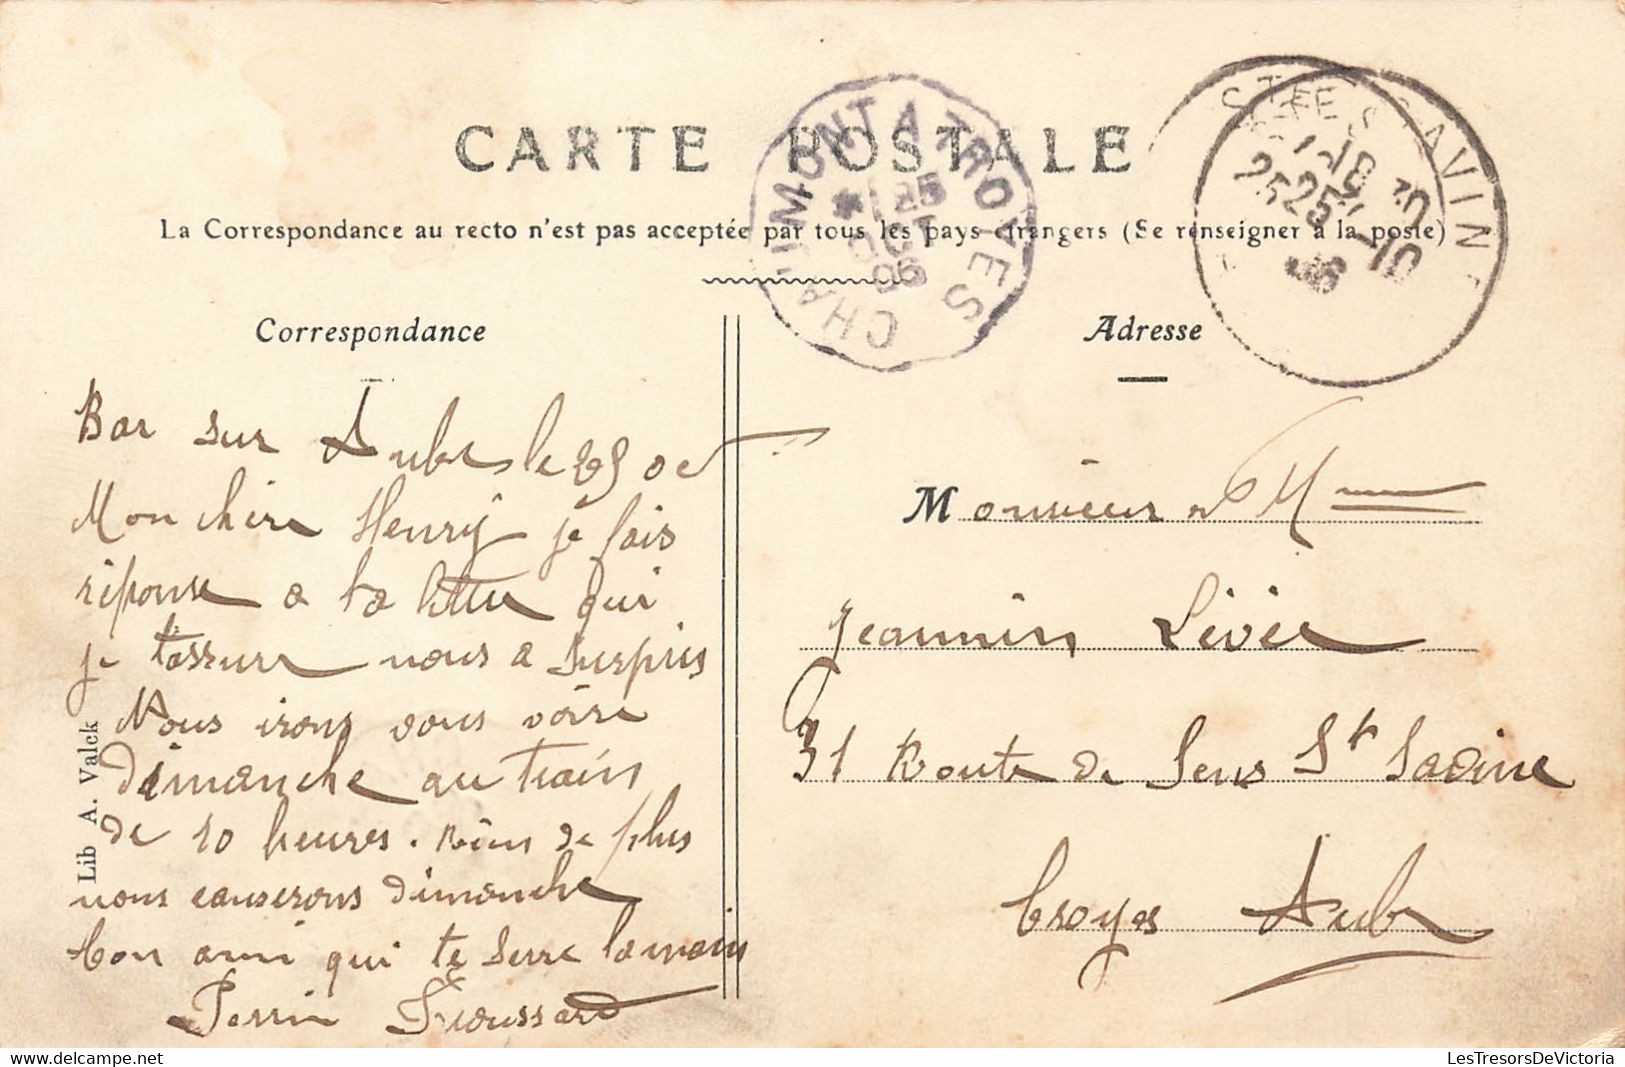 CARTE POSTALE
La Correspondance au recto n'est pas acceptée par tous les pays étrangers (Se renseigner à la poste)
CHAUMONT A TROYES
25
OCT
06
STE SAVINE
25-10
06
Correspondance
Bar sur Aube le 25 oc
Mon chère Henry je fais
réponse a ta lettre qui
je tassure nous a surpris
Nous irons vous voire
dimanche au train
de 10 heures. Rien de plus
nous causerons dimanche
ton ami qui te serre la main
Perrin
Lib A. Valck
Adresse
Monsieur et Mme
Jeannin
31 Route de Sens St Savine
Troyes Aube
LesTresorsDeVictoria
www.delcampe.net